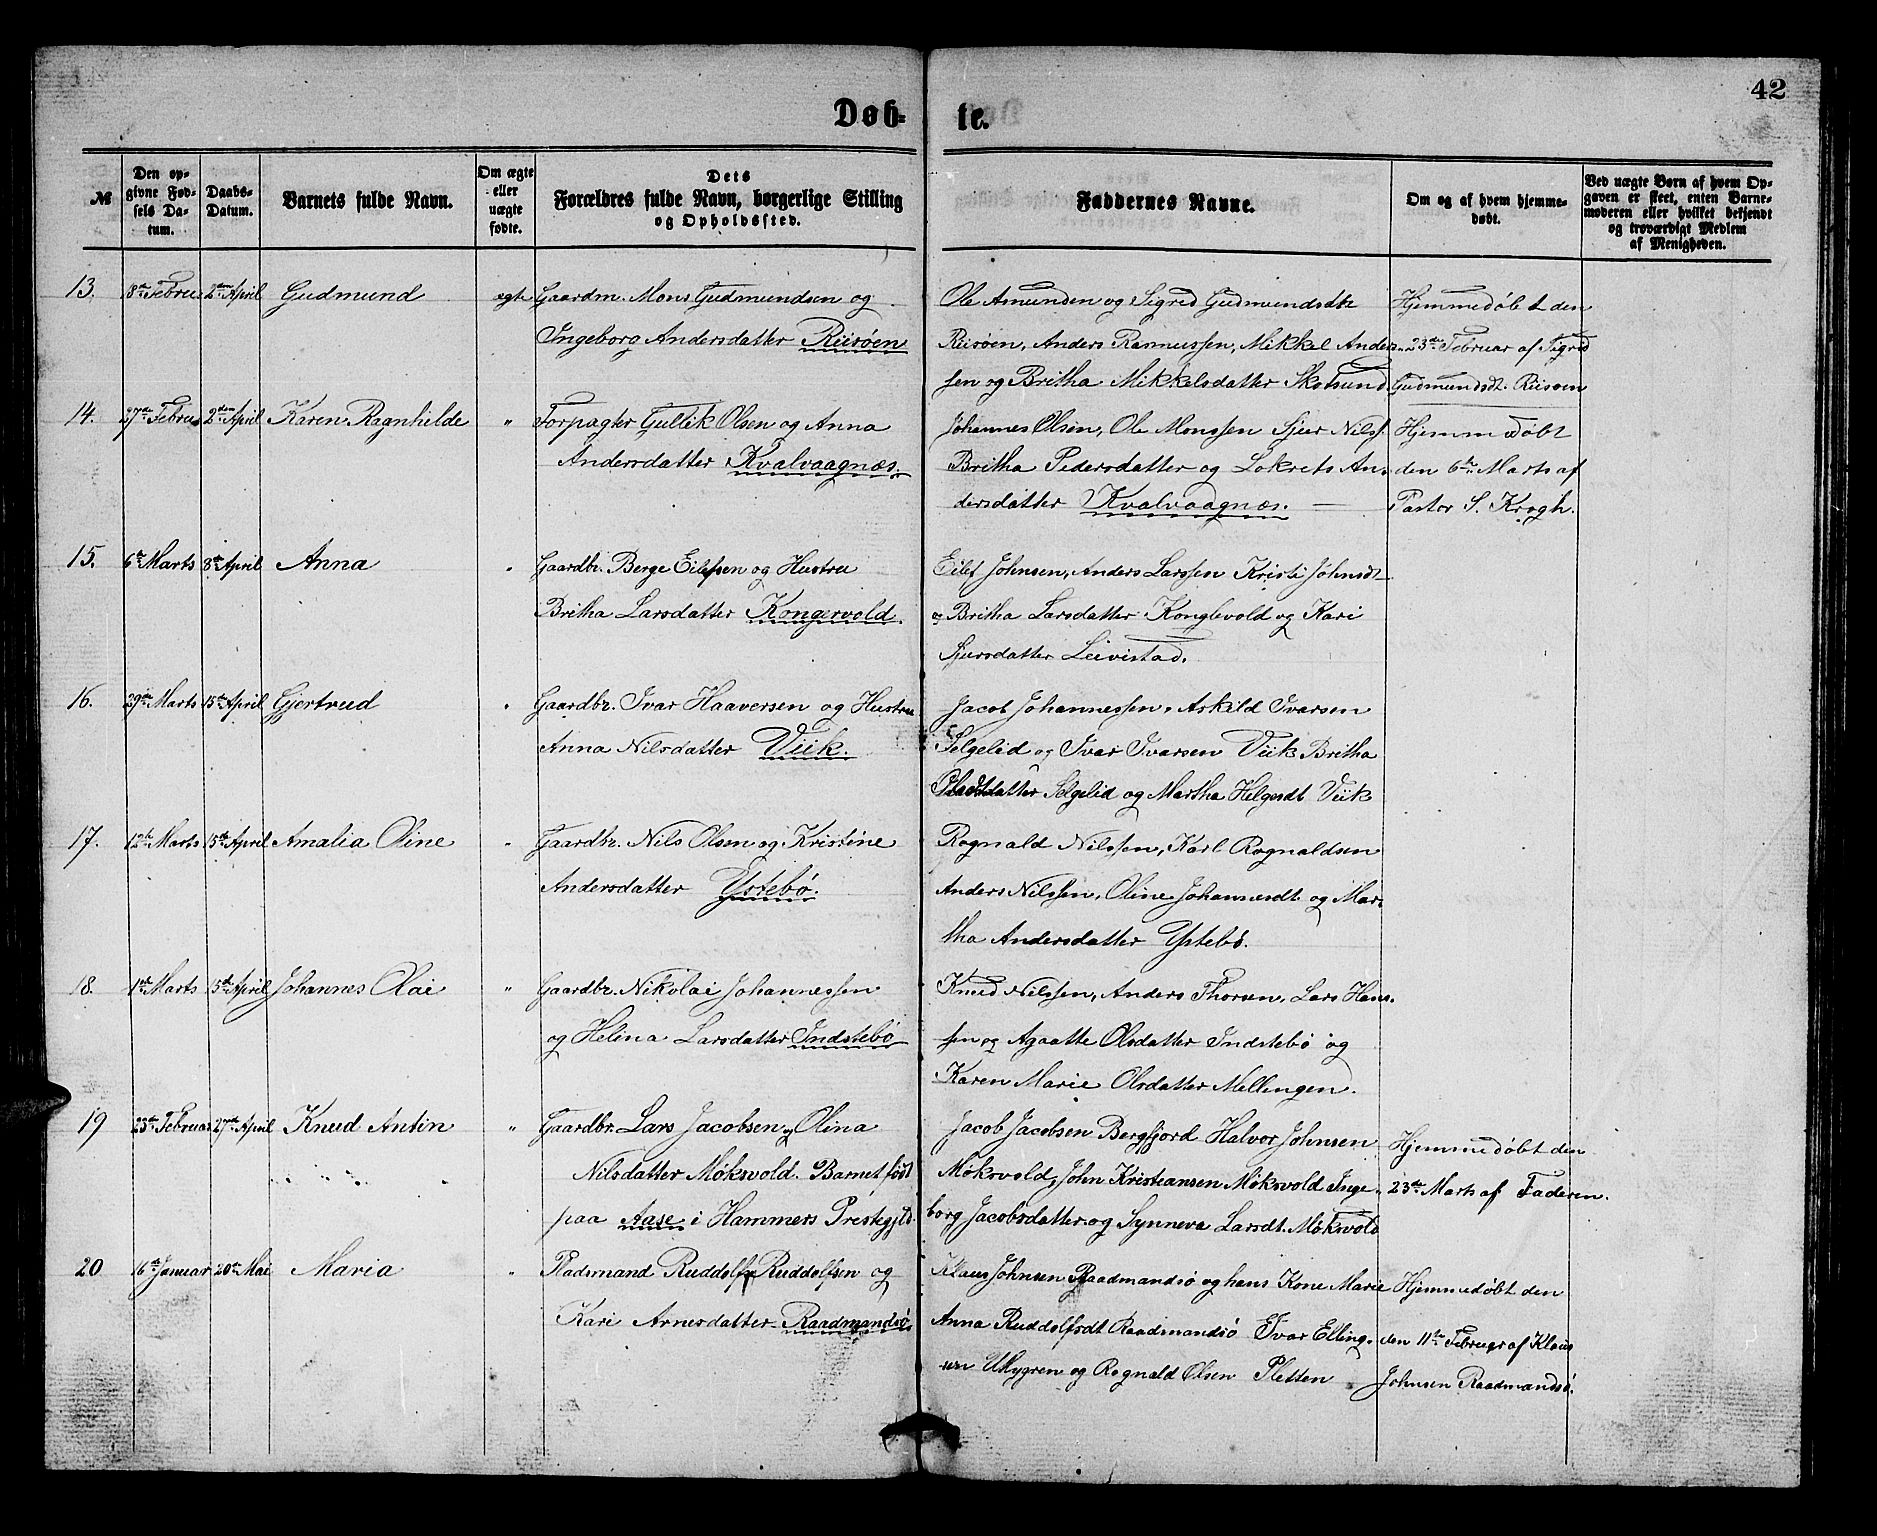 42
Døb-
te.
№
Den op-
givne Fød-
sels Da-
tum.
Daabs-
Datum.
Barnets fulde Navn.
Om ægte
eller
uægte
fødte.
Dets
Forældres fulde Navn, borgerlige Stilling
og Opholdssted.
Faddernes Navne.
Om og af hvem hjemme-
døbt.
Ved uægte Børn af hvem Op-
gaven er skeet, enten Barne-
moderen eller hvilket bekjendt
og troværdigt Medlem
af Menigheden.
13. 8de Febru 2den April Gudmund egte Gaardm. Mons Gudmundsen og
Ingeborg Andersdatter Riisøen
Ole Amunden og Sigrid Gudmundsdtr
Riisøen, Anders Rasmussen, Mikkel Anders-
sen og Britha Mikkelsdatter Skotsund.
Hjemmedøbt den
23de Februar af Sigrid
Gudmundsdt. Riisøen
14. 27de Febru 2den April Karen Ragnhilde " Forpagter Gullik Olsen og Anna
Andersdatter Kvalvaagnæs.
Johannes Olsen, Ole Monssen Sjur Nilss.
Britha Pedersdatter og Lokrets An-
dersdatter Kvalvaagnæs.
Hjemmedøbt
den 6te Marts af
Pastor S. Krogh.
15. 6te Marts 8de April Anna " Gaardbr. Berge Eilefsen og Hustru
Britha Larsdatter Kongsvold.
Eilef Johnsen, Anders Larssen Kristi Johnsdt
og Britha Larsdatter Konglevold og Kari
Sjursdatter Leivistad.
16. 29de Marts 15de April Gjertrud " Gaardbr. Ivar Haaversen og Hustru
Anna Nilsdatter Viik.
Jacob Johannessen, Askild Ivarsen
Selgelid og Ivar Ivarsen Viik Britha
datter Selgelid og Martha Helgesdt Viik
17. 12te Marts 15de April Amalia Oline " Gaardbr. Nils Olsen og Kristine
Andersdatter Ystebø.
Rognald Nilssen, Karl Rognaldsen
Anders Nilssen, Oline Johannesdt og Mar-
tha Andersdatter Ystebø.
18. 1ste Marts 15de April Johannes Olai " Gaardbr. Nikolai Johannessen
og Helina Larsdatter Indstebø
Knud Nilssen, Anders Thorsen, Lars Hans-
sen og Agaatte Olsdatter Indstebø og
Karen Marie Olsdatter Mellingen.
19 23de Februar 27de April Knud Antin " Gaardbr. Lars Jacobsen og Olina
Nilsdatter Møksvold. Barnet født
paa Aase i Hammers Prestegjld.
Jacob Jacobsen Bergfjord Halvor Johnsen
Møksvold, John Kristiansen Møksvold Inge-
borg Jacobsdatter og Synneva Larsdt. Møksvold
Hjemmedøbt den
23de Marts af Faderen.
20 16de Januar 20de Mai Maria " Pladsmand Ruddolf Ruddolfsen og
Kari Arnesdatter Raadmandsø
Klaus Johnsen Raadmandsø og hans Kone Marie
Anna Ruddolfsdt Raadmandsø Ivar Elling-
sen Uhygren og Rognald Olsen Pletten
Hjemmedøbt den
den 11te Februar af Klaus
Johnsen Raadmandsø.